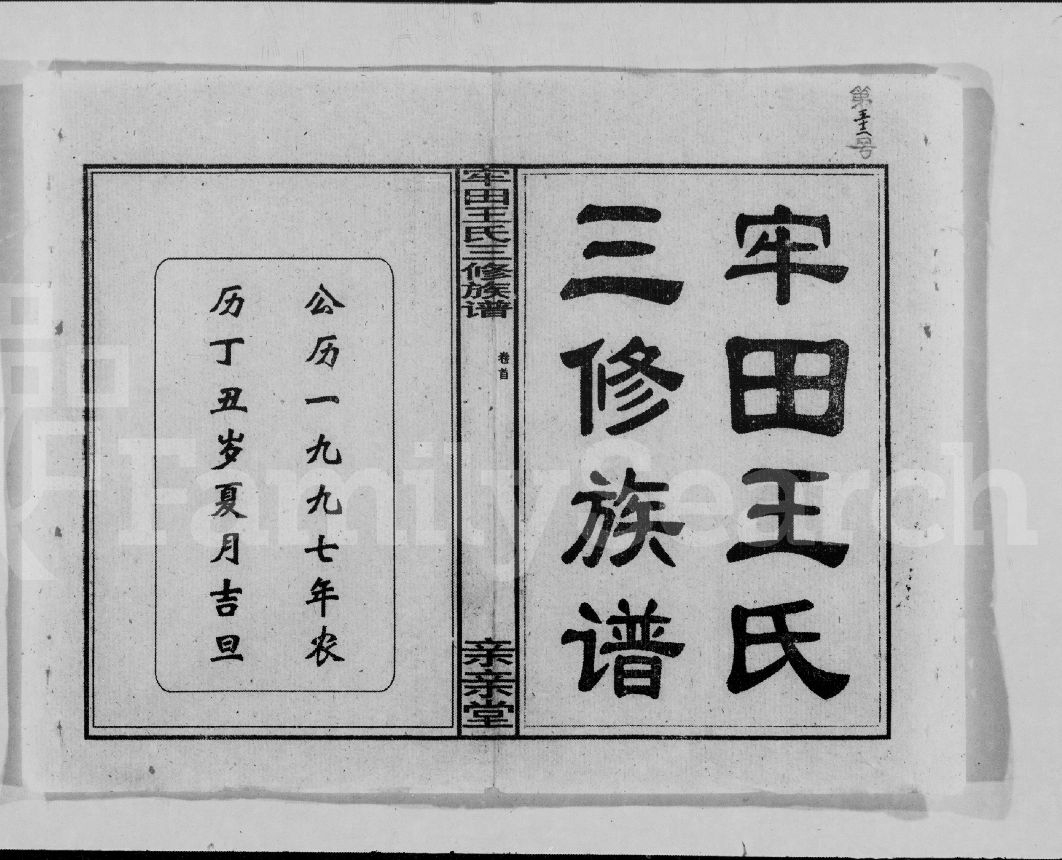 第
号
牢田王氏
三修族谱
牢田王氏三修族谱
卷首
亲亲堂
公历一九九七年农
历丁丑岁夏月吉旦
FamilySearch